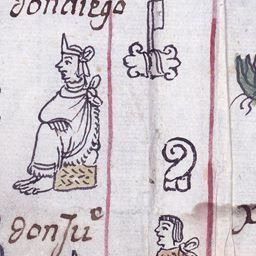 dondiego
donJuº